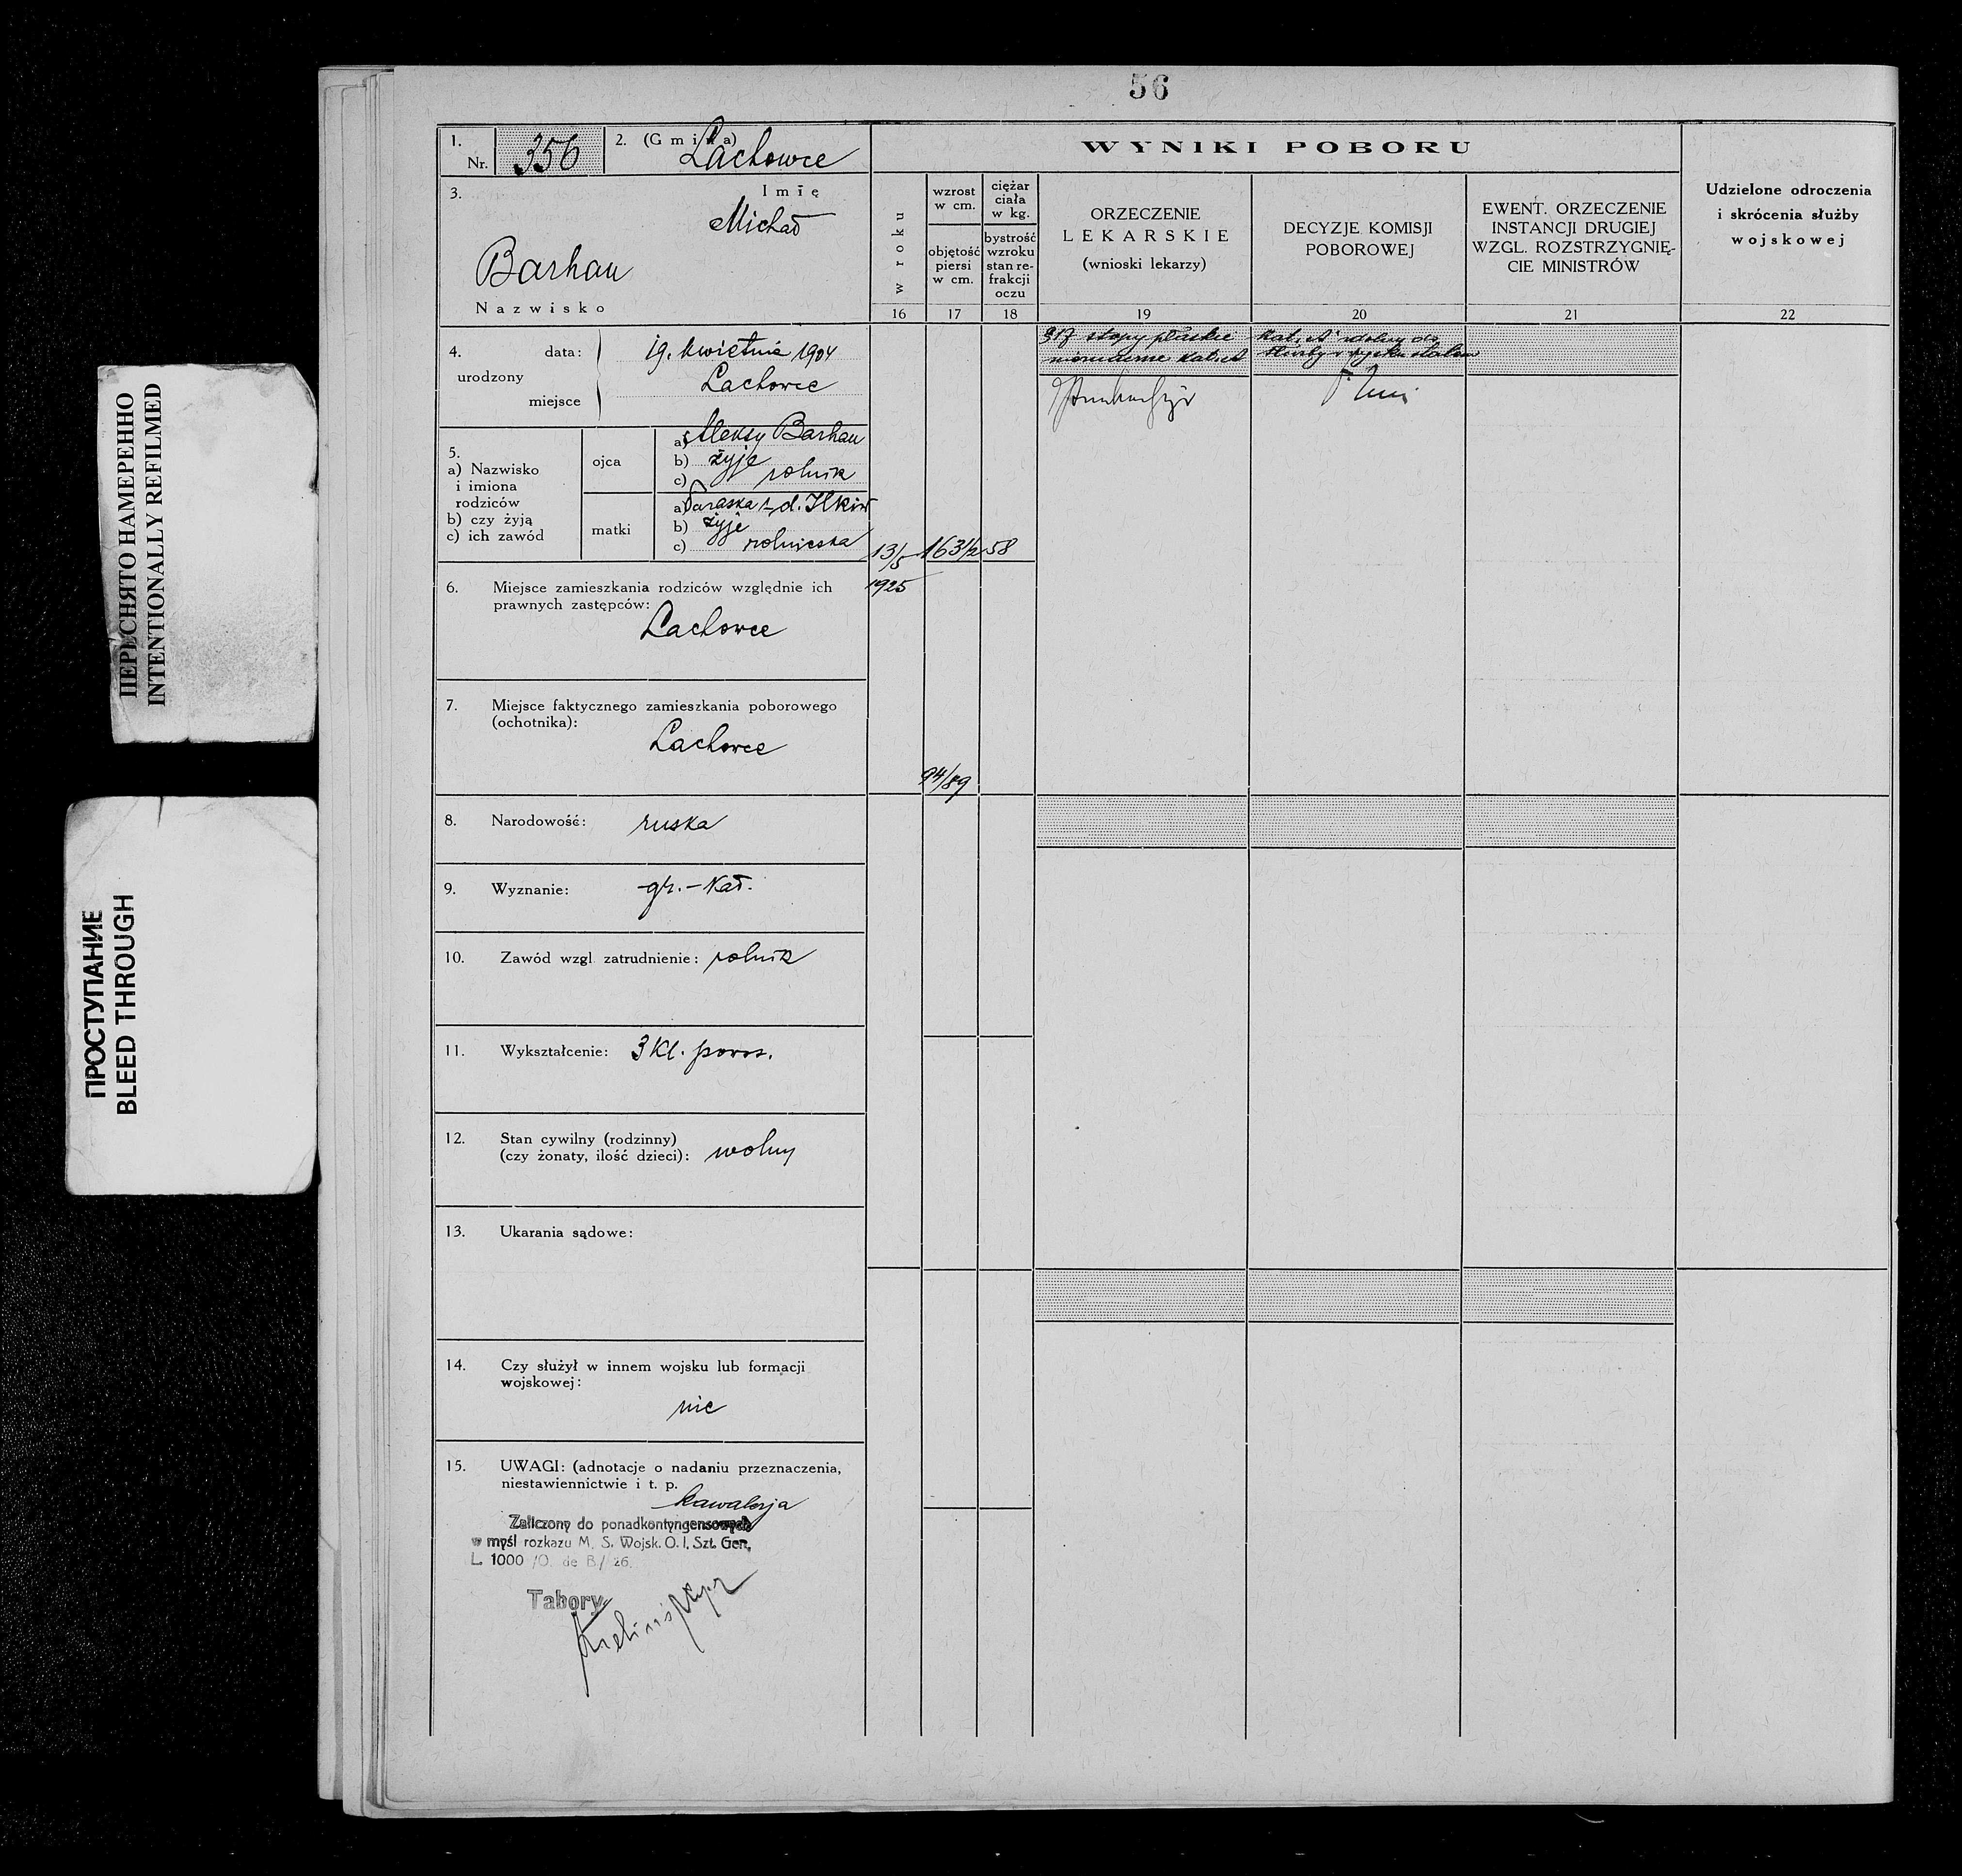 56
1.
Nr. 356
2. (Gmina)
Lachowce
3.
Imię
Michał
Barhau
Nazwisko
4. urodzony
data: 19. kwietnia 1904
miejsce Lachowce
5.
a) Nazwisko
i imiona
rodziców
b) czy żyją
c) ich zawód
ojca
a) Aleksy Barhau
b) żyje
c) rolnik
matki
a) Paraska z d. Ilków
b) żyje
c) rolniczka
6. Miejsce zamieszkania rodziców względnie ich
prawnych zastępców:
Lachowce
7. Miejsce faktycznego zamieszkania poborowego
(ochotnika):
Lachowce
8. Narodowość: ruska
9. Wyznanie: gr.-kat.
10. Zawód wzgl. zatrudnienie: rolnik
11. Wykształcenie: 3 kl. pows.
12. Stan cywilny (rodzinny)
(czy żonaty, ilość dzieci): wolny
13. Ukarania sądowe:
14. Czy służył w innem wojsku lub formacji
wojskowej:
nie
15. UWAGI: (adnotacje o nadaniu przeznaczenia,
niestawiennictwie i t. p.
kawalerja
Zaliczony do ponadkontyngensowych
w myśl rozkazu M. S. Wojsk. O. I. Szt. Gen,
L. 1000 /O. de B./ 26.
Tabory
WYNIKI POBORU
w roku
wzrost
w cm.
objętość
piersi
w cm.
ciężar
ciała
w kg.
bystrość
wzroku
stan re-
frakcji
oczu
ORZECZENIE
LEKARSKIE
(wnioski lekarzy)
DECYZJE KOMISJI
POBOROWEJ
EWENT. ORZECZENIE
INSTANCJI DRUGIEJ
WZGL. ROZSTRZYGNIĘ-
CIE MINISTRÓW
Udzielone odroczenia
i skrócenia służby
wojskowej
16 17 18 19 20 21 22
stopy płaskie
kat. A
kat. A zdolny do
służby
13/5 163 1/2 58
1925
94/89
ПЕРЕСНЯТО НАМЕРЕННО
INTENTIONALLY REFILMED
ПРОСТУПАНИЕ
BLEED THROUGH